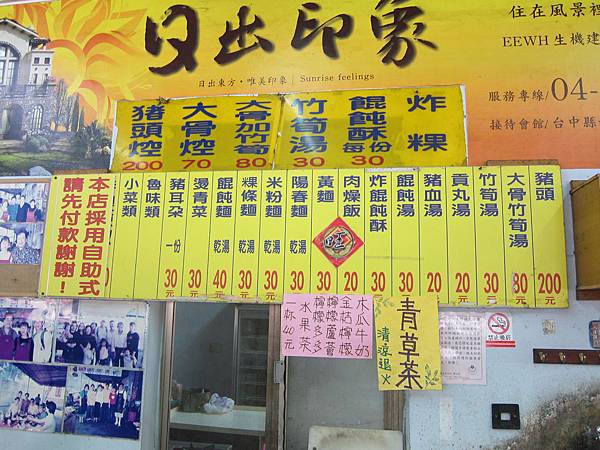 日出印象
日出東方・唯美印象 | Sunrise feelings
住在風景裡
EEWH 生機建
服務專線/04-
接待會館/台中縣
豬頭焢 200
大骨焢 70
大骨加竹筍 80
竹筍湯 30
餛飩酥 每份 30
炸粿
本店採用自助式
請先付款謝謝！
小菜類
魯味類
豬耳朵 一份 30元
燙青菜 30元
餛飩麵 乾湯 40元
粿條麵 乾湯 30元
米粉麵 乾湯 30元
陽春麵 乾湯 30元
黃麵 30元
肉燥飯 20元
炸餛飩酥 30元
餛飩湯 30元
豬血湯 20元
貢丸湯 20元
竹筍湯 30元
大骨竹筍湯 80元
豬頭 200元
木瓜牛奶
金桔檸檬
檸檬蘆薈
檸檬多多
水果茶
杯40元
青草茶
清涼退火
禁止吸菸